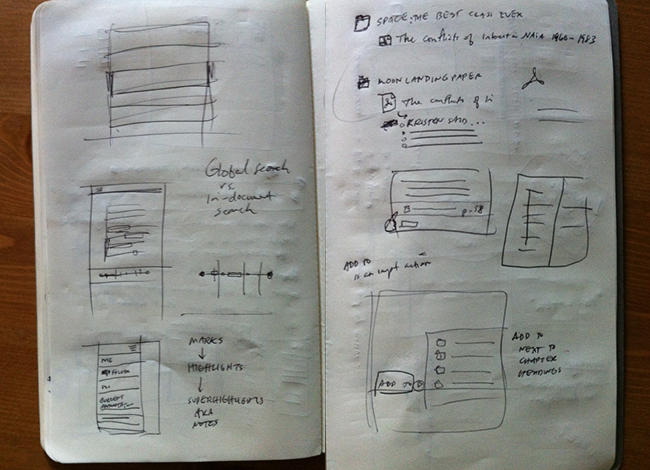 Global search
vs.
in-document
search
MARKS
HIGHLIGHTS
SUPERHIGHLIGHTS
AKA
NOTES
SPACE: THE BEST CLASS EVER
The conflicts of in NASA 1960-1983
MOON LANDING PAPER
The conflicts of
KRISTEN SAID...
p.58
ADD TO
is an action
ADD TO
ADD TO
NEXT TO
CHAPTER
HEADINGS